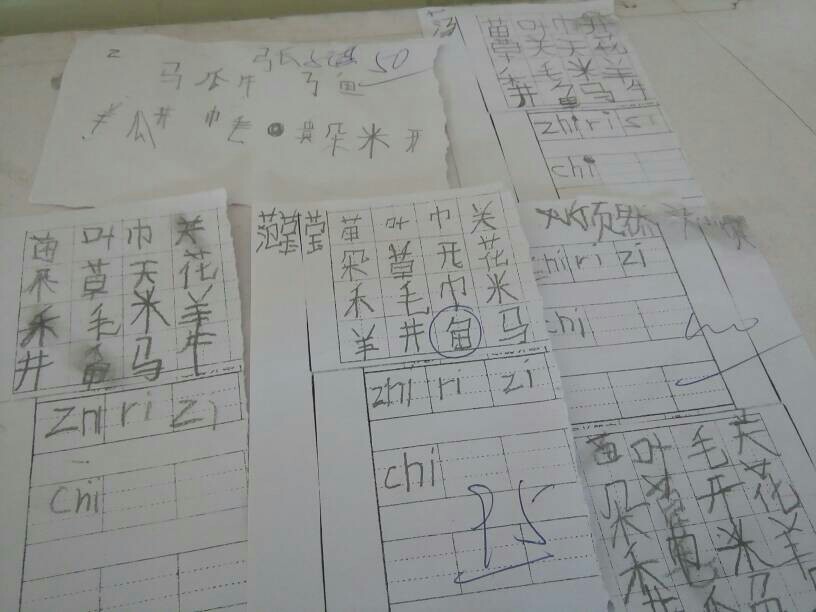 2
50
马 瓜 牛 弓 鱼
羊 瓜 井 巾 毛 朵 米 开
苗 叶 巾 开
草 关 天 花
禾 毛 米 羊
井 鱼 马 牛
zhi ri si
chi
苗 叶 巾 关
禾 草 天 花
禾 毛 米 羊
井 鱼 马 牛
zhi ri zi
chi
莹莹
苗 叶 巾 关
朵 草 开 花
禾 毛 巾 米
羊 井 鱼 马
zhi ri zi
chi
95
chi ri zi
chi
苗 叶 毛 关
朵 草 开 花
禾 米 羊
马